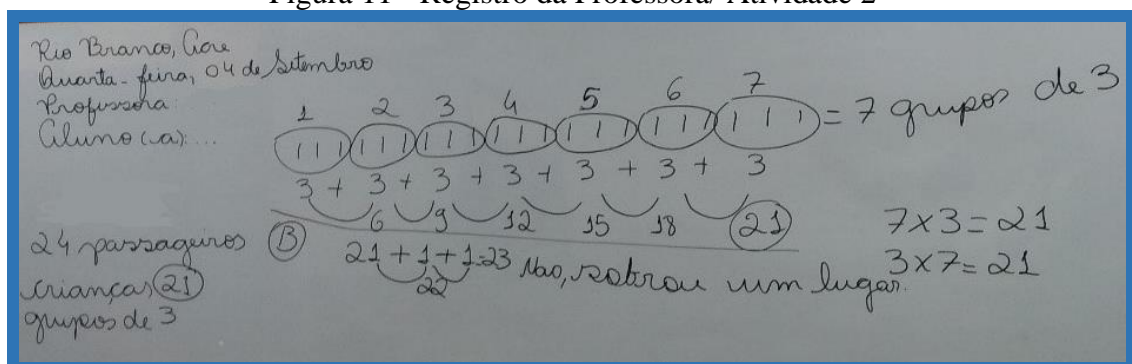 Figura 11 - Registro da Professora/ Atividade 2
Rio Branco, Acre
Quarta-feira, 04 de Setembro
Professora:
Aluno (a): ...
1 2 3 4 5 6 7
||| ||| ||| ||| ||| ||| ||| = 7 grupos de 3
3 + 3 + 3 + 3 + 3 + 3 + 3
6 9 12 15 18 21
7x3=21
3x7=21
24 passageiros
crianças 21
grupos de 3
B
21+1+1=23 Não, sobrou um lugar.
22